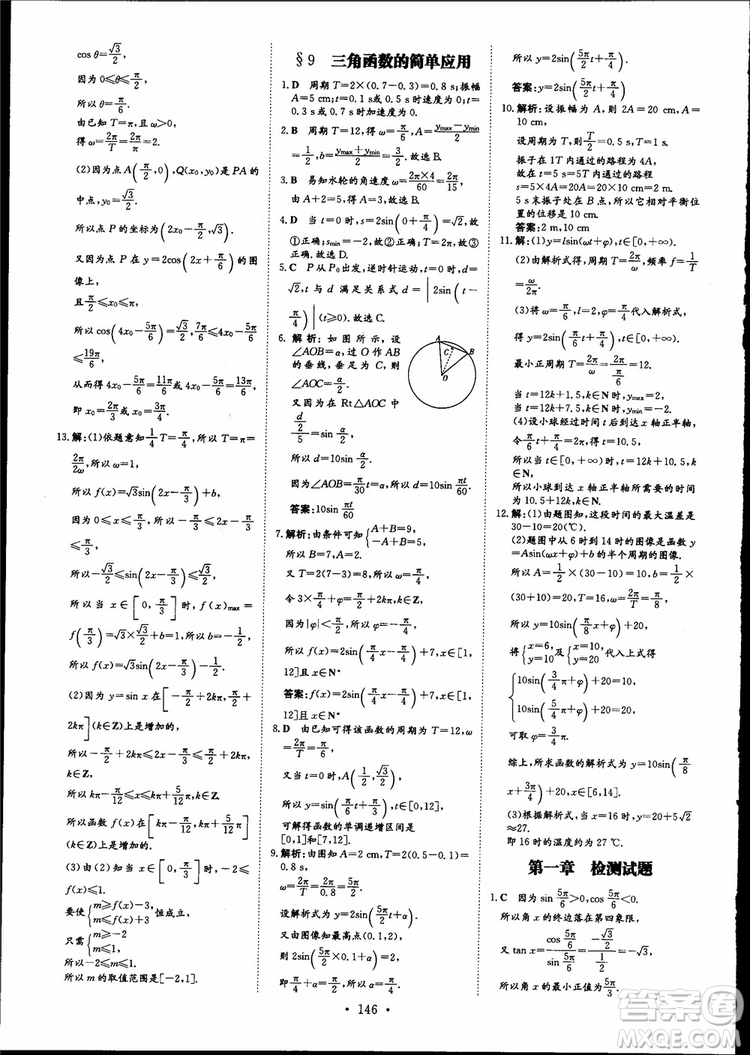 cosθ=√3/2
因为 0≤θ≤π/2,
所以 θ=π/6.
由已知 T=π,且 ω>0,
得 ω=2π/T=2π/π=2.
(2)因为点 A(π/2,0),Q(x₀,y₀)是 PA 的
中点,y₀=√3/2.
所以点 P 的坐标为(2x₀-π/2,√3).
又因为点 P 在 y=2cos(2x+π/6)的图
像上,
且 π/2≤x₀≤π,
所以 cos(4x₀-5π/6)=√3/2,7π/6≤4x₀-5π/6
≤19π/6,
从而得 4x₀-5π/6=11π/6 或 4x₀-5π/6=13π/6,
即 x₀=2π/3 或 x₀=3π/4.
13.解:(1)依题意知 1/4 T=π/4,所以 T=π=
2π/2ω,
所以 f(x)=√3sin(2x-π/3)+b,
因为 0≤x≤π/3,
所以 -π/3≤2x-π/3≤π/3,
所以 -√3/2≤sin(2x-π/3)≤√3/2,
所以当 x∈[0,π/3]时,f(x)max=
f(π/3)=√3×√3/2+b=1,所以 b=-1/2,
所以 f(x)=√3sin(2x-π/3)-1/2.
(2)因为 f(x)在[-π/2+2kπ,π/2+2kπ](k∈Z)上是增加的,
所以 -π/2+2kπ≤2x-π/3≤π/2+2kπ,
k∈Z,
所以 kπ-π/12≤x≤kπ+5π/12,k∈Z,
所以函数 f(x)在[kπ-π/12,kπ+5π/12](k∈Z)上是增加的.
(3)由(2)知当 x∈[0,π/3]时,-2≤
f(x)≤1,
要使{m≥f(x)-3, m≤f(x)+3 恒成立,
只需{m≥-2 m≤1,
所以 m 的取值范围是[-2,1]
§9 三角函数的简单应用
1.D 周期 T=2×(0.7-0.3)=0.8 s;振幅
A=5 cm;t=0.1 s或0.5 s时速度为0;t=
0.3 s或0.7 s时加速度为0.
2.B 周期 T=12,得 ω=π/6,A=(ymax-ymin)/2
=1/2,b=(ymax+ymin)/2.故选 B.
3.D 易知水轮的角速度 ω=4×2π/60=2π/15,
由 A+2=5,得 A=3.故选 B.
4.D 当 t=0 时,s=2sin(0+π/4)=√2,故
①正确;smin=-2,故②正确;T=2π,故
③正确,故选 D.
5.C P 从 P₀出发,逆时针运动,t=0时,d=
√2,t与d满足关系式 d=|2sin(t-
π/4)|(t≥0).故选 C.
6.解析:如图所示,设
∠AOB=α,过 O 作 AB
的垂线,垂足为 C,则
∠AOC=α/2.
又因为在 Rt△AOC 中
(d/2)/5=sin α/2,
所以 d=10sin α/2,
因为∠AOB=π/30 t=α,所以 d=10sin πt/60.
答案:10sin πt/60
A
C
B
O
7.解析:由条件可知{A+B=9, -A+B=5,
所以 B=7,A=2.
又 T=2(7-3)=8,所以 ω=π/4,
令 3×π/4+φ=π/2+2kπ,k∈Z,
因为|φ|<π/2,所以φ=-π/4,
所以 f(x)=2sin(π/4 x-π/4)+7,x∈[1,
12]且 x∈N*
答案:f(x)=2sin(π/4 x-π/4)+7,x∈[1,
12]且 x∈N*
8.D 由已知可得该函数的周期为 T=12,ω
=2π/T=π/6.
又当 t=0 时,A(1/2,√3/2),
所以 y=sin(π/6 t+π/3),t∈[0,12],
可解得函数的单调递增区间是
[0,1]和[7,12].
9.解析:由图知 A=2 cm,T=2(0.5-0.1)=0.8 s,
ω=2π/T=2π/0.8=5π/2.
设解析式为 y=2sin(5π/2 t+α).
由图像知图像最高点(0.1,2),
则 2sin(5π/2×0.1+α)=2,
所以 π/4+α=π/2,α=π/4,
所以 y=2sin(5π/2 t+π/4).
答案:y=2sin(5π/2 t+π/4)
10.解析:设振幅为 A,则 2A=20 cm,
A=10 cm.
设周期为 T,则 T/2=0.5 s,T=1 s.
因为在 1T 内通过的路程为 4A,
故在 t=5 s=5T 内通过的路程
s=5×4A=20A=20×10=200 cm=2 m.
5 s 末振子处在 B 点,所以它相对平衡位
置的位移为 10 cm.
答案:2 m 10 cm
11.解:(1)y=lsin(ωt+φ),t∈[0,+∞).
(2)由解析式得,周期 T=2π/ω,频率 f=1/T
=ω/2π.
(3)将 ω=π/6,l=2,φ=π/4代入解析式,
得 y=2sin(π/6 t+π/4),t∈[0,+∞).
最小正周期 T=2π/ω=2π/(π/6)=12.
当 t=12k+1.5,k∈N时,ymax=2,
当 t=12k+7.5,k∈N时,ymin=-2.
(4)设小球经过时间 t 后到达 x 轴正半轴,
令 π/6 t+π/4=2π,得 t=10.5,
所以当 t∈[0,+∞)时,t=12k+10.5,
k∈N,
所以小球到达 x 轴正半轴所需要的时间为
10.5+12k,k∈N.
12.解:(1)由题图知,这段时间的最大温差是
30-10=20(℃).
(2)题图中从 6 时到 14 时的图像是函数 y=
Asin(ωx+φ)+b 的半个周期的图像,
所以 A=1/2×(30-10)=10,b=1/2×
(30+10)=20,因为 T=16,所以 ω=2π/T=π/8,
所以 y=10sin(π/8 x+φ)+20.
将{x=6, y=10 及{x=10, y=20 代入上式得
{10sin(3/4 π+φ)+20=10, 10sin(5/4 π+φ)+20=20,
可取 φ=3π/4.
综上,所求函数的解析式为 y=10sin(π/8 x+3π/4)+20,x∈[6,14].
(3)根据解析式,当 x=16 时,y=20+5√2
≈27.
即 16 时的温度约为 27 ℃
第一章 检测试题
1.C 因为 sin 5π/6>0,cos 5π/6<0,
所以角 x 的终边落在第四象限,
又 tan x=cos 5π/6 / sin 5π/6=(-√3/2)/(1/2)=-√3,
所以角 x 的最小正值为 5π/3.
· 146 ·
答案圈